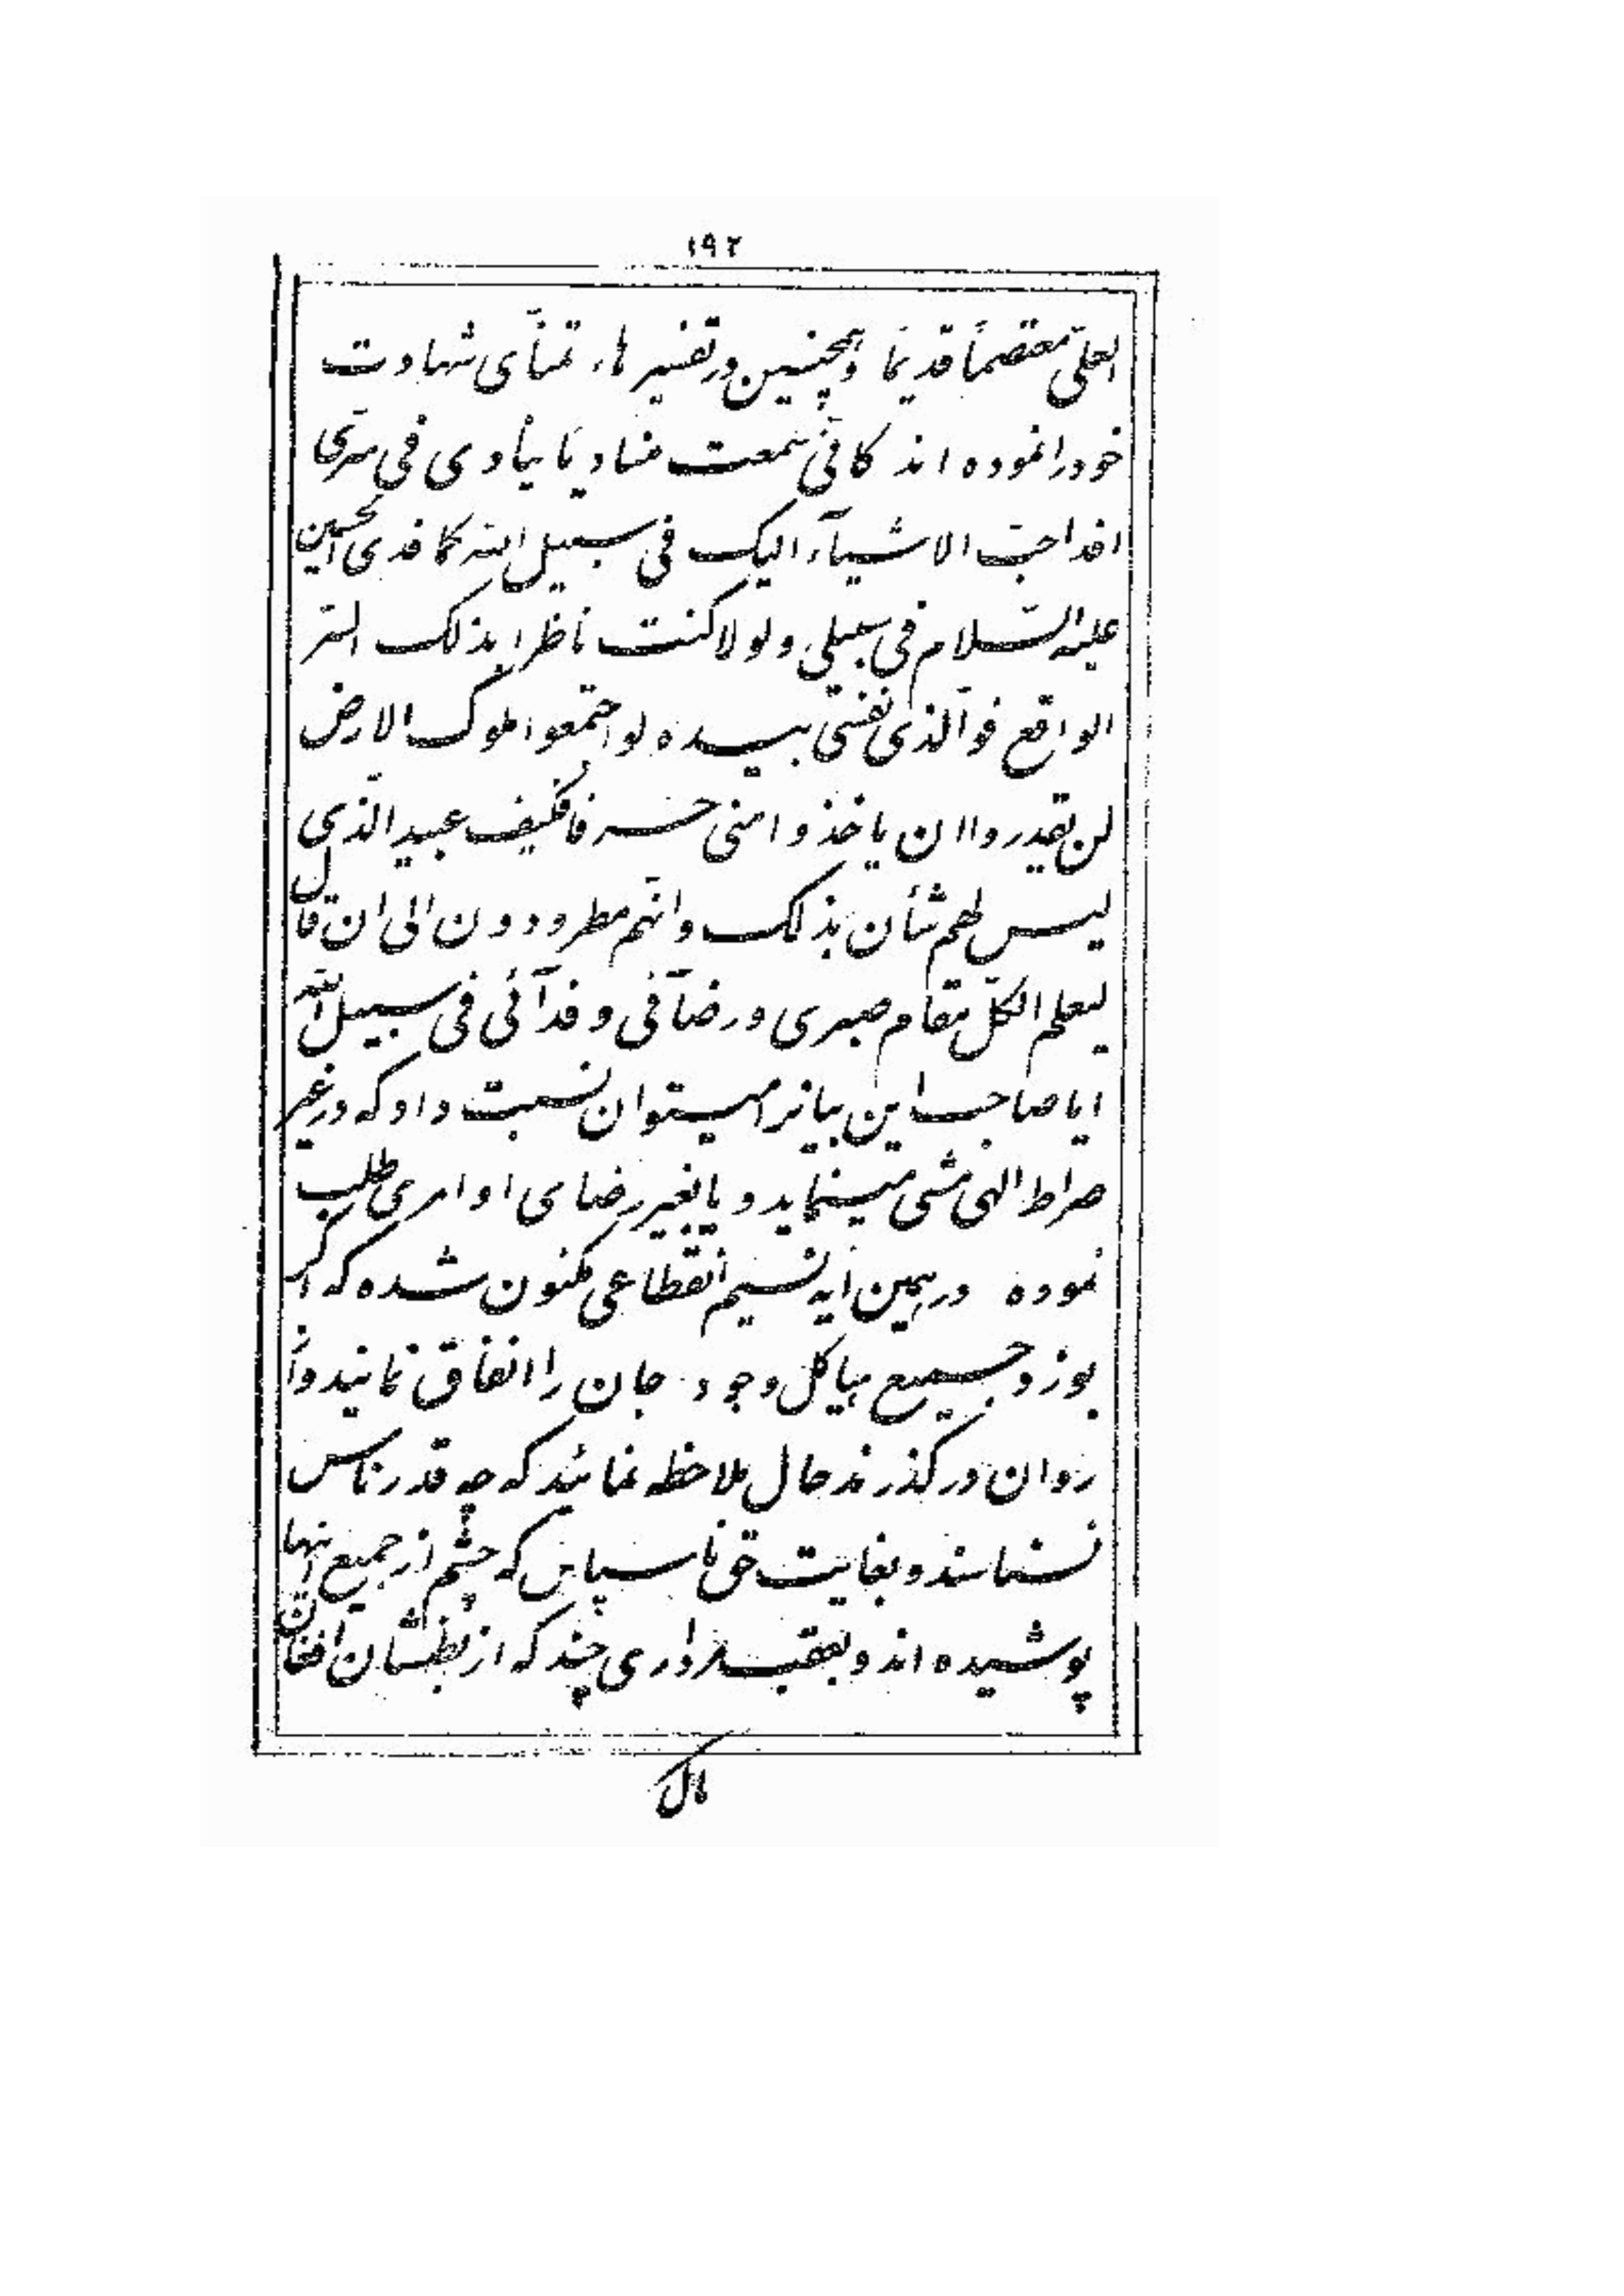 ۱۹۲
العلیّ معتصماً قدیماً و همچنین در تفسیر هاء تمنّای شهادت
خود را نموده اند کانّی سمعت منادیاً ینادی فی سرّی
افد احبّ الاشیآء الیک فی سبیل الله کما فدی الحسین
علیه السّلام فی سبیلی و لولا کنت ناظرا بذلک السّر
الواقع فوالّذی نفسی بیده لو اجتمعوا ملوک الارض
لن یقدروا ان یاخذوا منی حرفا فکیف عبید الّذی
لیس لهم شأن بذلک و انّهم مطرودون الی ان قال
لیعلم الکلّ مقام صبری و رضآئی و فدآئی فی سبیل اللّه
ایا صاحب این بیانرا میتوان نسبت داد که در غیر
صراط الهی مشی مینماید و یا بغیر رضای او امری طلب
نموده در همین ایه نسیم انقطاعی مکنون شده که اگر
بوزد جمیع هیاکل وجود جان را انفاق نمایند و از
روان در گذرند حال ملاحظه نمائید که چه قدر ناس
نسناسند و بغایت حق ناسپاس که چشم از جمیع اینها
پوشیده اند و بعقب مرداری چند که از بطنشان افغان
مال